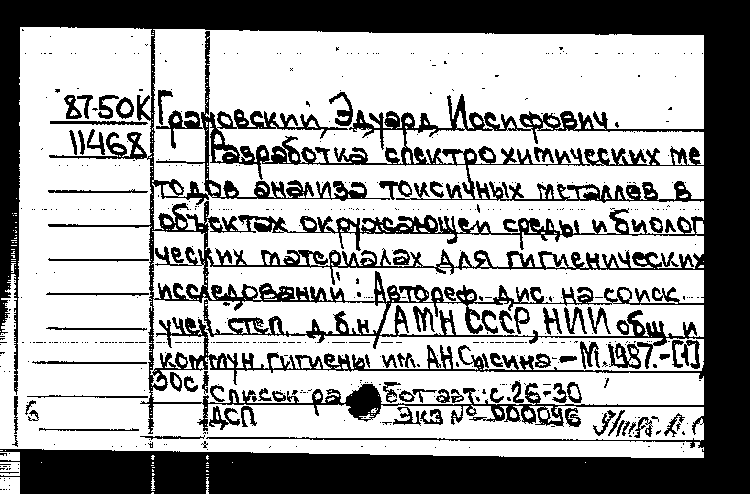 87-50К Грановский, Эдуард Иосифович.
11468 Разработка спектрохимических ме
тодов анализа токсичных металлов в
объектах окружающей среды и биолог
ческих материалах для гигиенических
исследований : Автореф. дис. на соиск.
учен. степ. д.б.н. / АМН СССР, НИИ общ. и
коммун. гигиены им. А.Н.Сысина. - М. 1987. - [1],
30с. Список работ авт.: с. 26-30
6 ДСП Экз № 000096